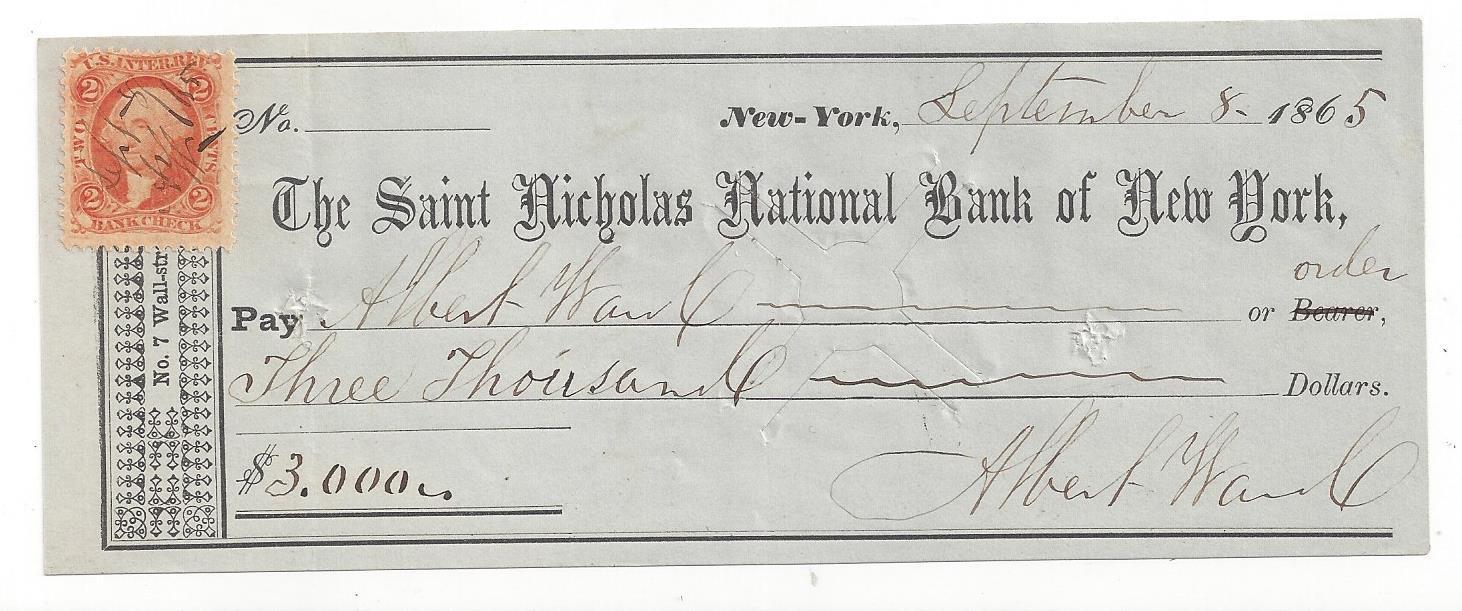 U.S. INTER. REV.
2 2
TWO CENTS
2 2
BANK CHECK
No. 7 Wall-str
No.
New-York, September 8. 1865
The Saint Nicholas National Bank of New York,
order
Pay Albert Ward or Bearer,
Three Thousand Dollars.
$3.000
Albert Ward